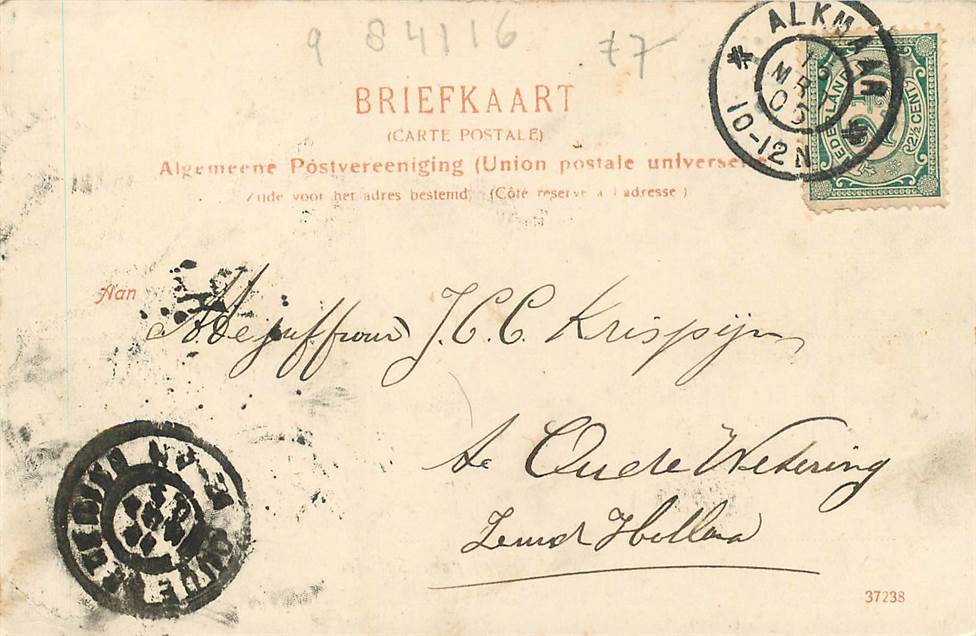 9 84116 77
BRIEFKAART
(CARTE POSTALE)
Algemeene Postvereeniging (Union postale universelle)
Zijde voor het adres bestemd. (Côté réservé à l'adresse)
ALKMAAR
15
MRT
10-12N
NEDERLAND
2½ CENT
Aan
Mejuffrouw J. C. C. Krispijn
te Oude Wetering
Zuid Holland
OUDE
37238